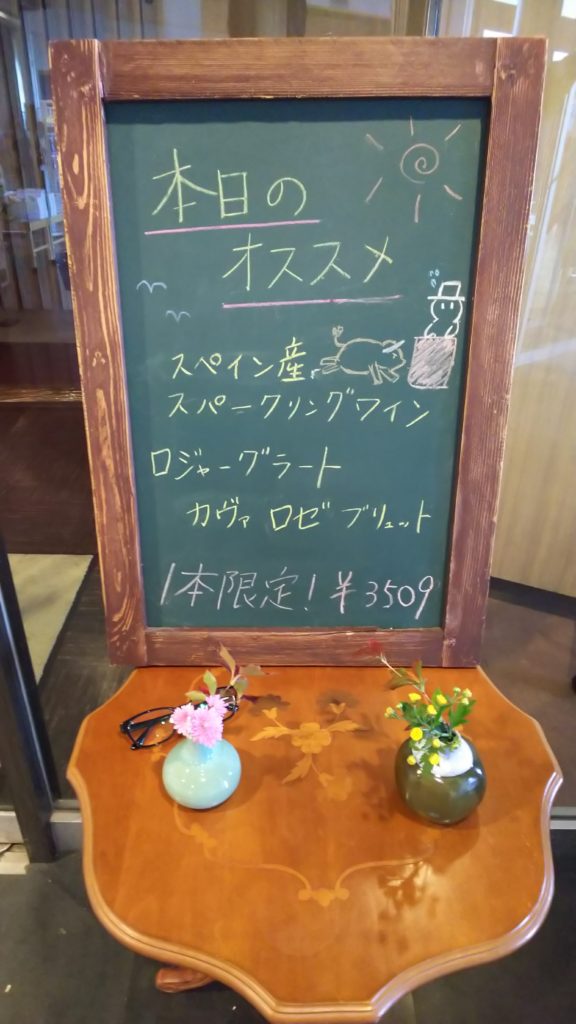 本日の
オススメ
スペイン産
スパークリングワイン
ロジャーグラート
カヴァ ロゼ ブリュット
1本限定! ¥3509